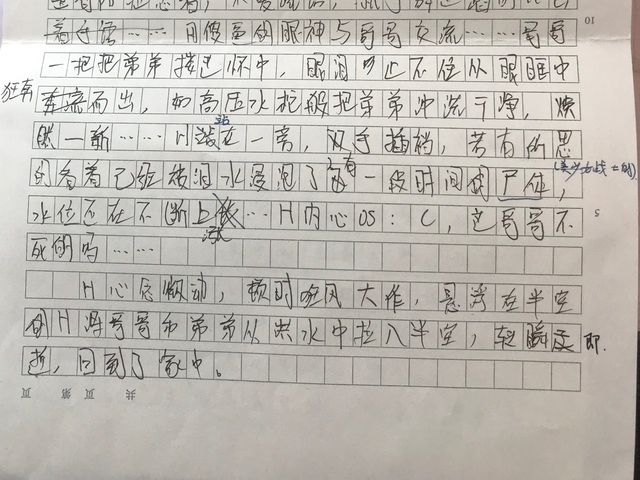 着手语……用傻逼的眼神与哥哥交流……哥哥
一把把弟弟搂过怀中，眼泪止不住从眼眶中
狂奔
而出，如高压水枪般把弟弟冲洗干净，焕
然一新……H站在一旁，双手插裆，若有所思
(美少女战士的)
的看着已经被泪水浸泡了有一段时间的尸体，
水位还在不断上涨…H内心OS：C，这哥哥不
死的吗……
H心念微动，顿时狂风大作，悬浮在半空
的H将哥哥和弟弟从洪水中拉入半空，转瞬即
逝，回到了家中。
共 页 第 页
10
5